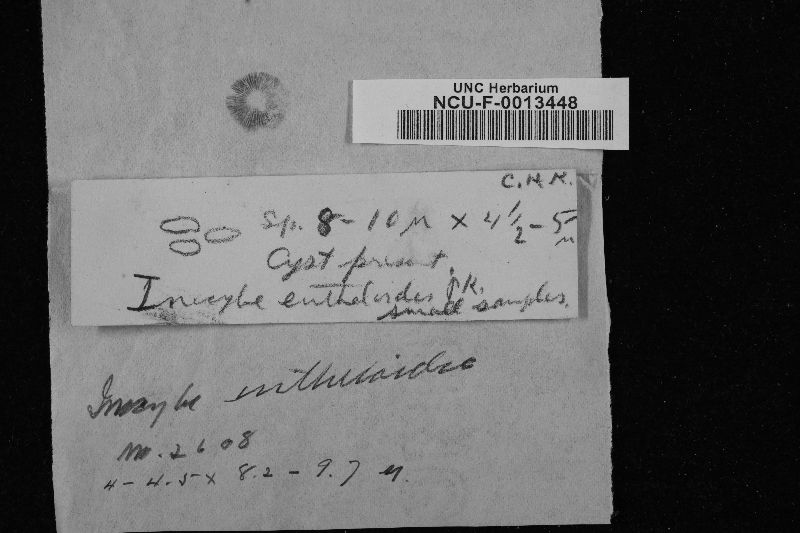 UNC Herbarium
NCU-F-0013448
C.H.K.
Sp. 8-10 µ × 4 1/2 - 5 µ
Cyst present.
Inocybe entheloides PK.
small samples.
Inocybe entheloides
No. 2608
4 - 4.5 × 8.2 - 9.7 µ.